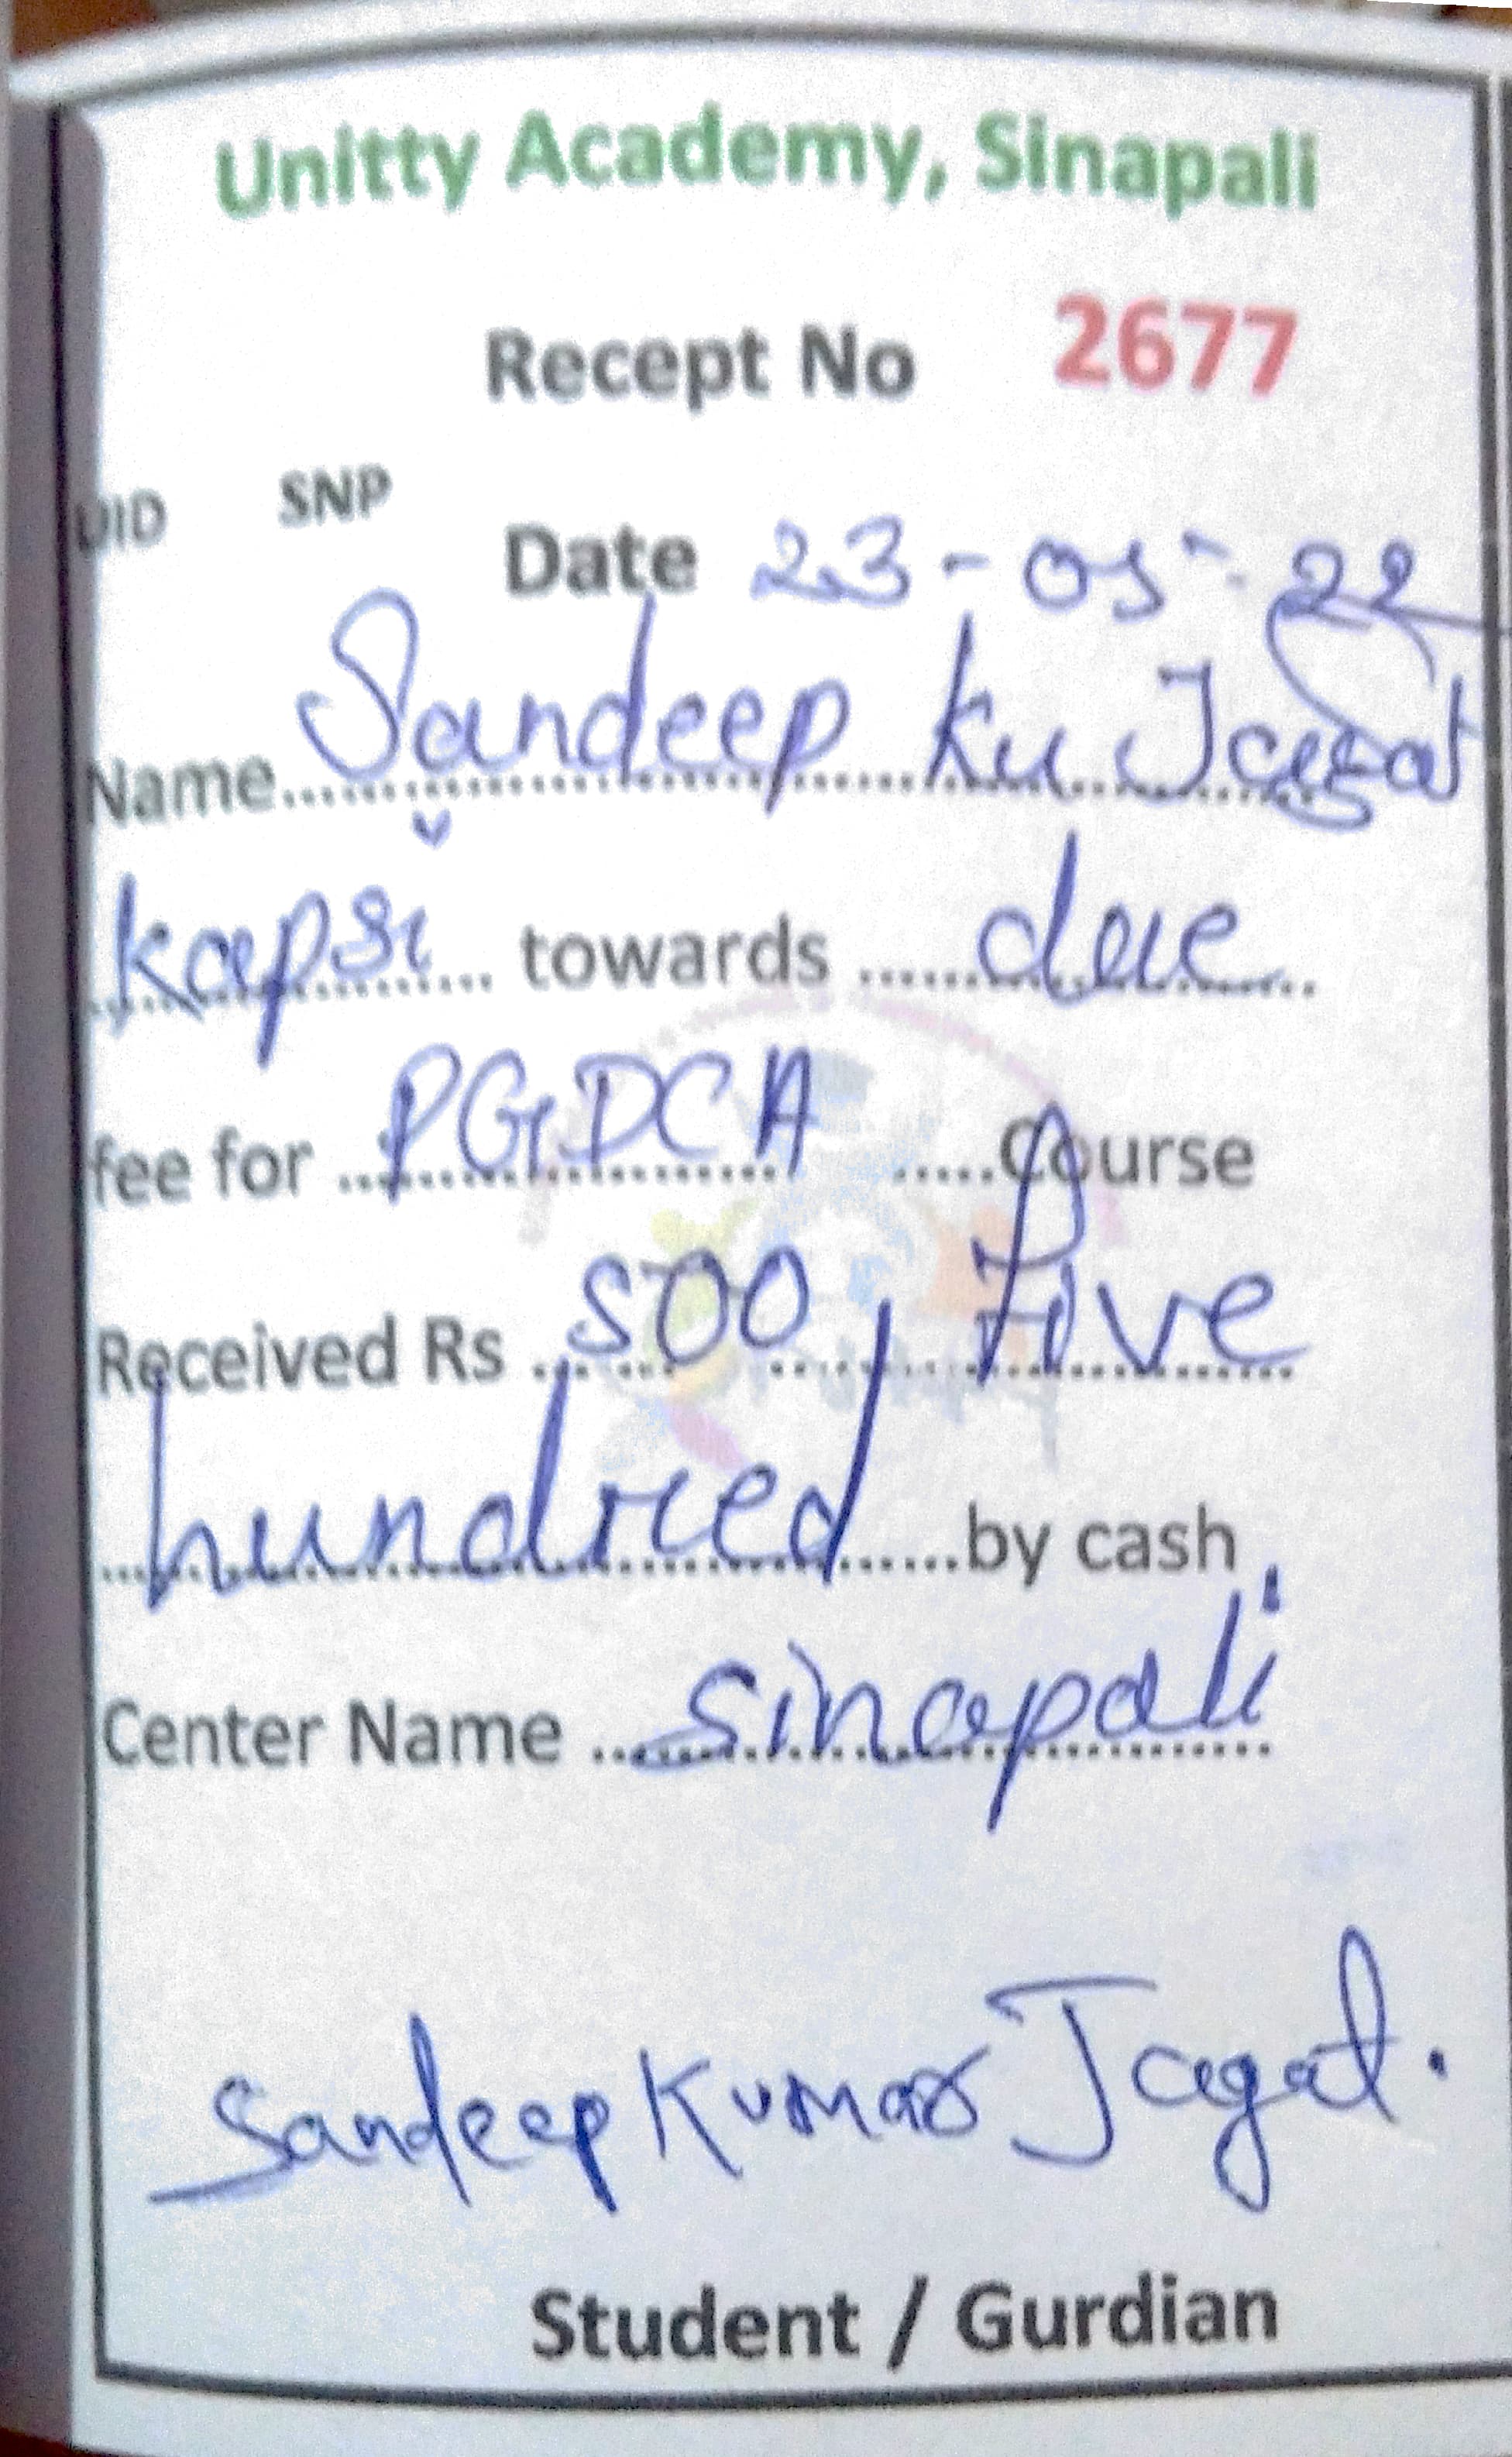 Unitty Academy, Sinapali
Recept No 2677
UID SNP
Date 23-05-22
Name Sandeep Ku Jagat
Kapsi towards due
fee for PGDCA Course
Received Rs 500, Five
hundred by cash
Center Name Sinapali
Sandeep Kumar Jagat.
Student / Gurdian